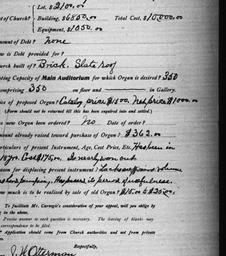 Lot, $2100.00
of Church? Building, $6550.00 Total Cost, $10,000.00
Equipment, $1050.00
mount of Debt? None
ow is Debt provided for?
urch built of? Brick, Slate roof
ating Capacity of Main Auditorium for which Organ is desired? 350
mprising 350 on floor and in Gallery.
ice of proposed Organ? Catalog price $1500. Net price $1000.00
(Form should not be returned till this has been inquired into and stated.)
new Organ been ordered? no Date of order?
mount already raised toward purchase of Organ? $362.00
articulars of present Instrument, Age, Cost Price, Etc. Has been in
Cost $175.00. Is nearly worn out
eason for displacing present instrument? Lacks
pumping, Has passed its period of usefulness.
ow much is to be realized by sale of old Organ? $15.00 to $25.00.
To facilitate Mr. Carnegie's consideration of your appeal, will you oblige by
in the above.
Precise answer to each question is necessary. The leaving of blanks may
correspondence to be created.
Application should come from Church authorities and not from private
Respectfully,
Otterman